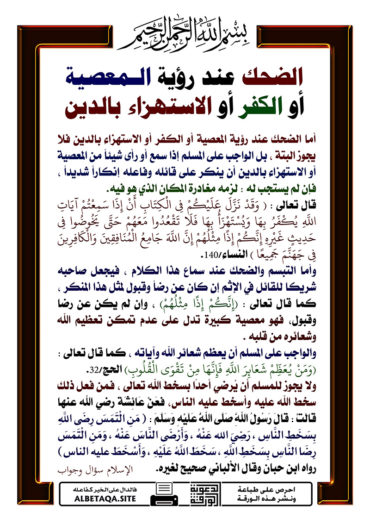 بسم الله الرحمن الرحيم
الضحك عند رؤية الـمعصية
أو الكفر أو الاستهزاء بالدين
أما الضحك عند رؤية المعصية أو الكفر أو الاستهزاء بالدين فلا
يجوز البتة ، بل الواجب على المسلم إذا سمع أو رأى شيئا من المعصية
أو الاستهزاء بالدين أن ينكر على قائله وفاعله إنكاراً شديداً ،
فإن لم يستجب له : لزمه مغادرة المكان الذي هو فيه.
قال تعالى : ( وَقَدْ نَزَّلَ عَلَيْكُمْ فِي الْكِتَابِ أَنْ إِذَا سَمِعْتُمْ آيَاتِ
اللَّهِ يُكْفَرُ بِهَا وَيُسْتَهْزَأُ بِهَا فَلَا تَقْعُدُوا مَعَهُمْ حَتَّى يَخُوضُوا فِي
حَدِيثٍ غَيْرِهِ إِنَّكُمْ إِذًا مِثْلُهُمْ إِنَّ اللَّهَ جَامِعُ الْمُنَافِقِينَ وَالْكَافِرِينَ
فِي جَهَنَّمَ جَمِيعًا ) النساء/140.
وأما التبسم والضحك عند سماع هذا الكلام ، فيجعل صاحبه
شريكا للقائل في الإثم إن كان عن رضا وقبول لمثل هذا المنكر ،
كما قال تعالى : (إِنَّكُمْ إِذًا مِثْلُهُمْ) ، وإن لم يكن عن رضا
وقبول، فهو معصية كبيرة تدل على عدم تمكن تعظيم الله
وشعائره من قلبه .
والواجب على المسلم أن يعظم شعائر الله وآياته ، كما قال تعالى :
(وَمَنْ يُعَظِّمْ شَعَائِرَ اللَّهِ فَإِنَّهَا مِنْ تَقْوَى الْقُلُوبِ) الحج/32.
ولا يجوز للمسلم أن يُرضي أحدا بسخط الله تعالى ، فمن فعل ذلك
سخط الله عليه وأسخط عليه الناس، فعن عائشة رضي الله عنها
قالت : قال رَسُولُ اللهِ صَلَّى اللَّهُ عَلَيْهِ وَسَلَّمَ : ( مَنِ الْتَمَسَ رِضَى اللَّهِ
بِسَخَطِ النَّاسِ ، رَضِيَ الله عَنْهُ ، وَأَرْضَى النَّاسَ عَنْهُ ، وَمَنِ الْتَمَسَ
رِضَا النَّاسِ بِسَخَطِ اللَّهِ ، سَخَطَ اللَّهُ عَلَيْهِ ، وَأَسْخَطَ عليه الناس )
رواه ابن حبان وقال الألباني صحيح لغيره.
الإسلام سؤال وجواب
احرص على طباعة
ونشر هذه الورقة
الدعوية
الورقة
فالدال على الخير كفاعله
ALBETAQA.SITE